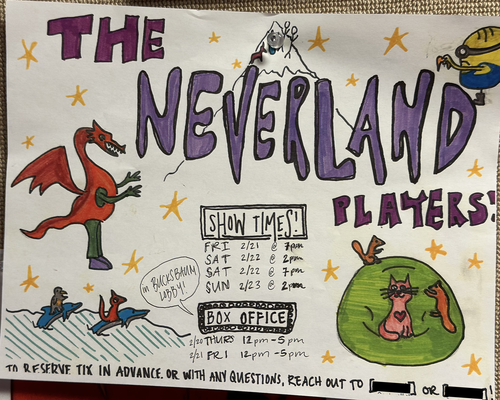 THE
NEVERLAND
PLAYERS'
SHOW TIMES!
FRI 2/21 @ 7pm
SAT 2/22 @ 2pm
SAT 2/22 @ 7pm
SUN 2/23 @ 2pm
in BUCKSBAUM LOBBY!
BOX OFFICE
2/20 THURS 12pm -5pm
2/21 FRI 12pm -5pm
TO RESERVE TIX IN ADVANCE, OR WITH ANY QUESTIONS, REACH OUT TO OR !